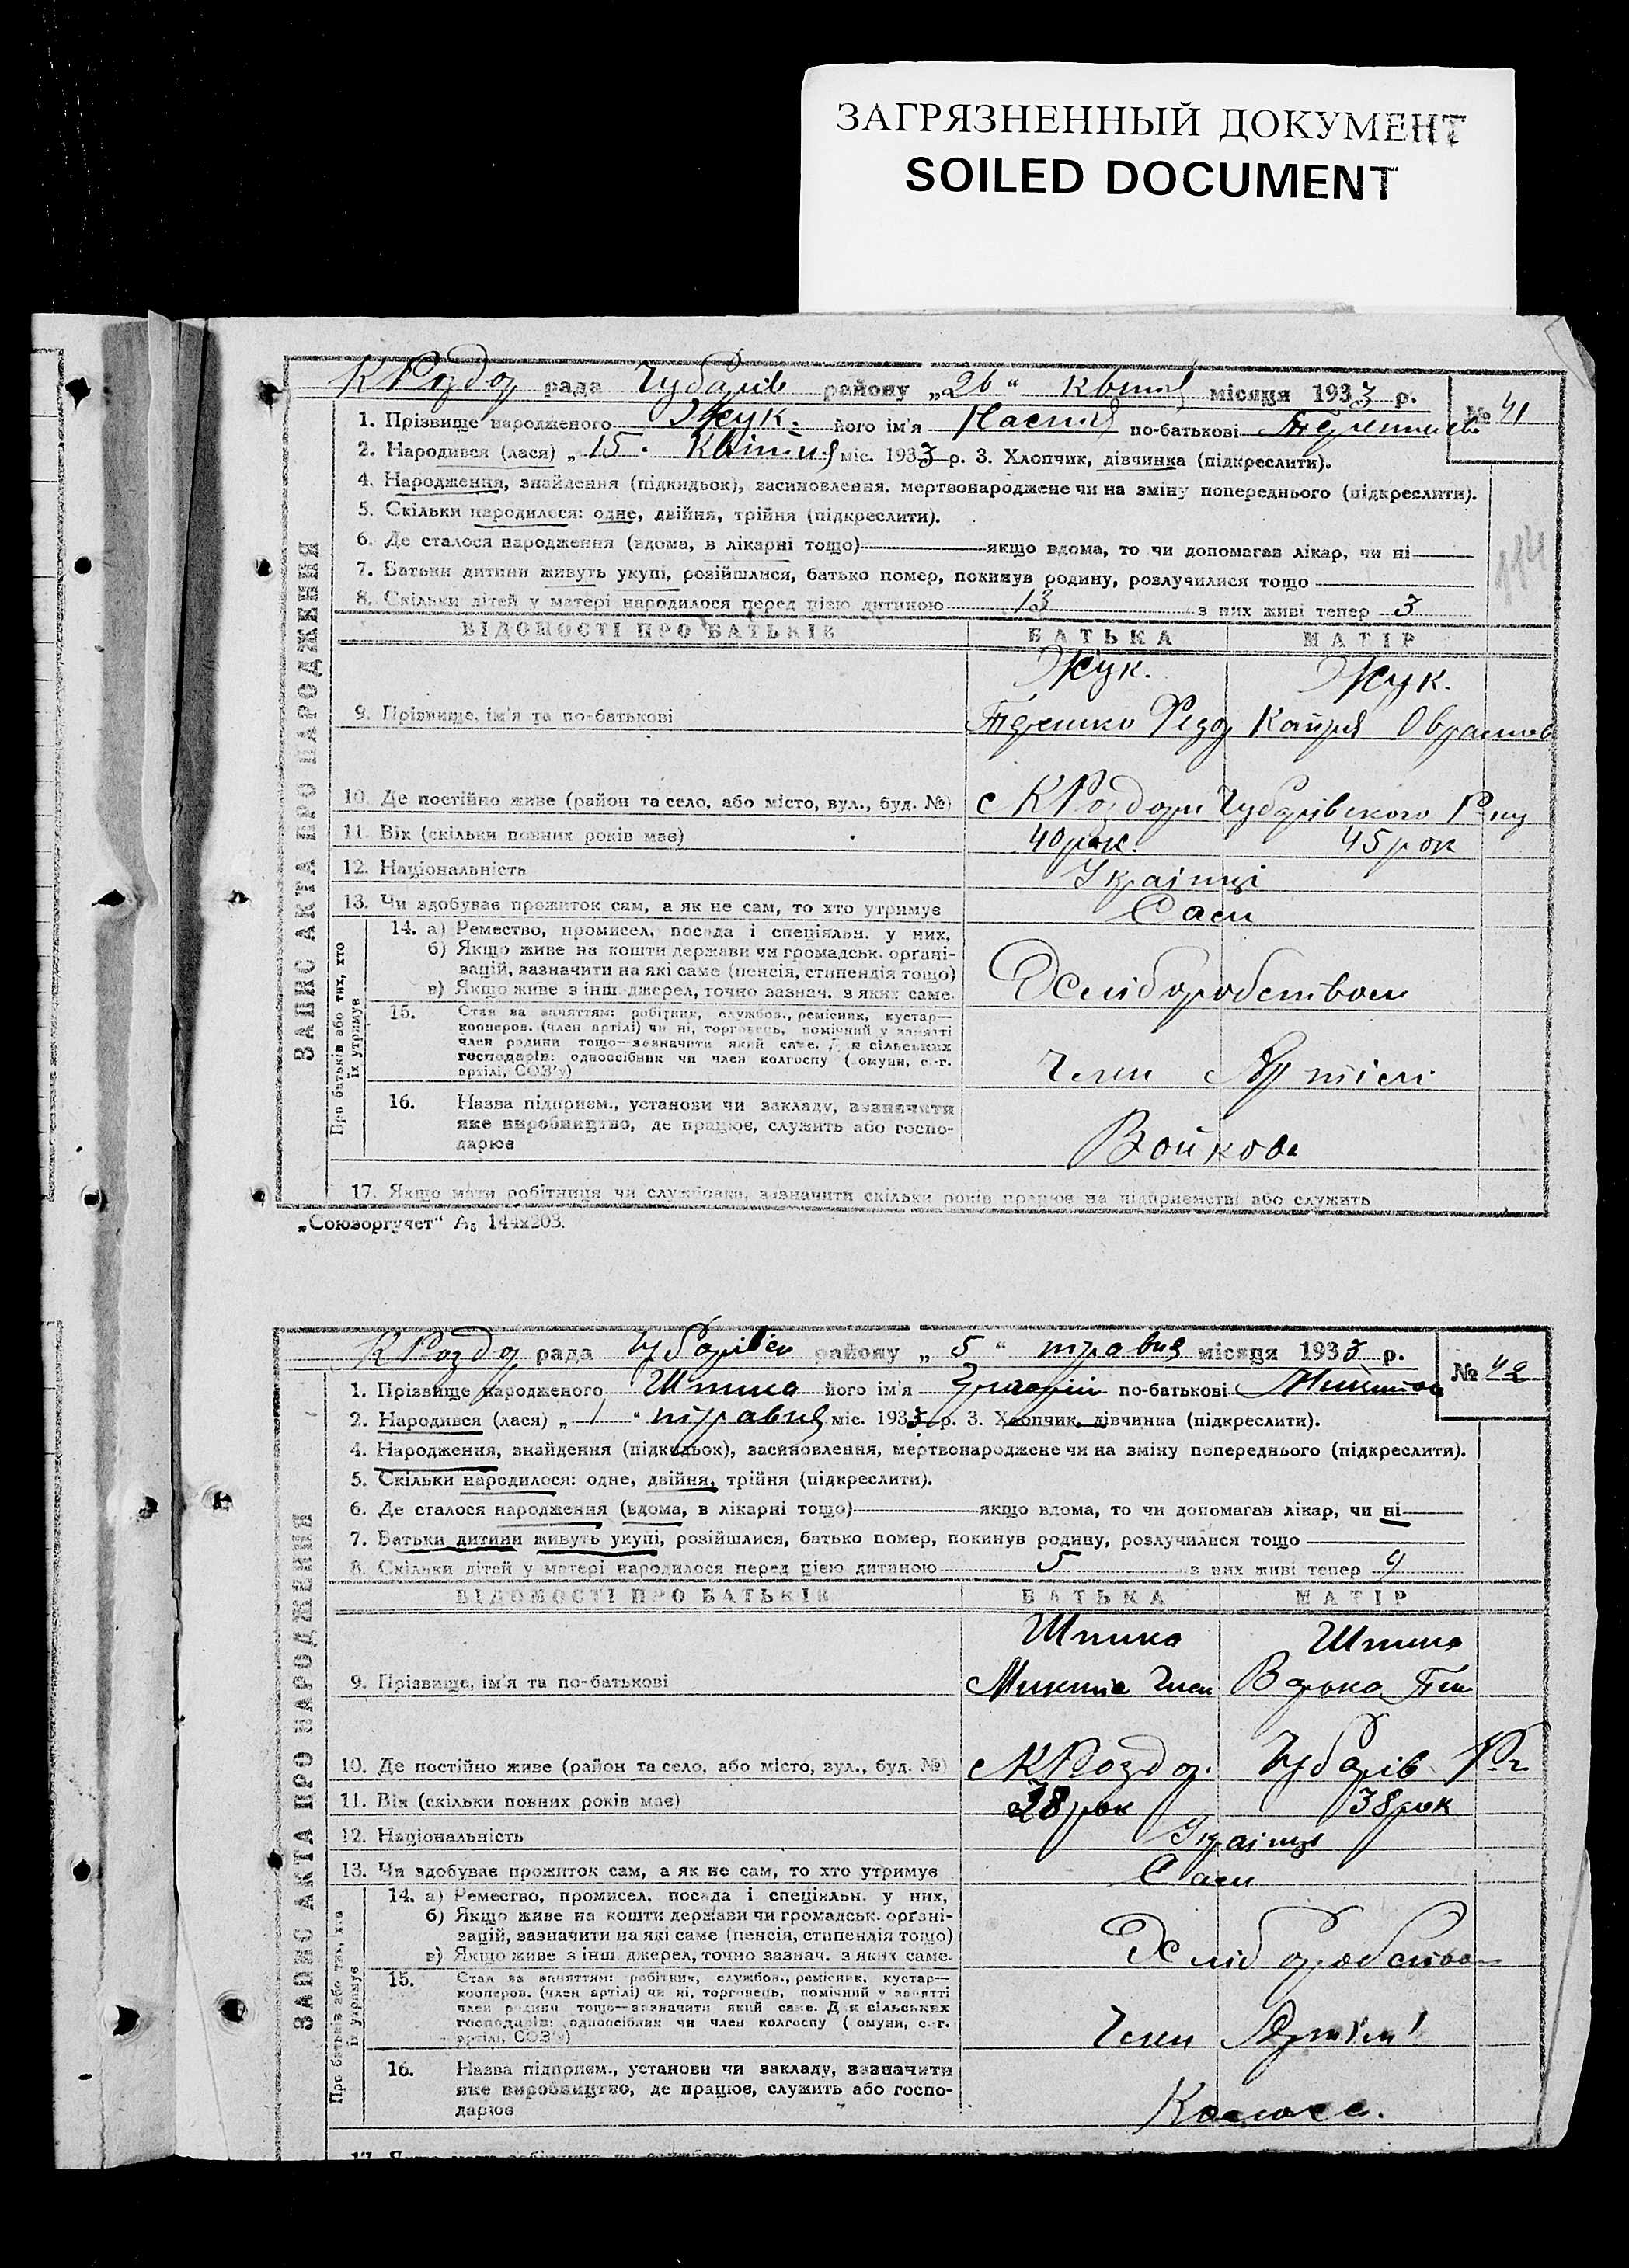 ЗАГРЯЗНЕННЫЙ ДОКУМЕНТ
SOILED DOCUMENT
ЗАПИС АКТА ПРО НАРОДЖЕННЯ
К Розд рада Чубарів району „26“ квітня місяця 1933 р.
№ 41
1. Прізвище народженого Жук. його ім'я Настя по-батькові
2. Народився (лася) „15" Квітня міс. 1933 р. 3. Хлопчик, дівчинка (підкреслити).
4. Народження, знайдення (підкидьок), засиновлення, мертвонароджене чи на зміну попереднього (підкреслити).
5. Скільки народилося: одне, двійня, трійня (підкреслити).
6. Де сталося народження (вдома, в лікарні тощо) якщо вдома, то чи допомагав лікар, чи ні
7. Батьки дитини живуть укупі, розійшлися, батько помер, покинув родину, розлучилися тощо
8. Скільки дітей у матері народилося перед цією дитиною 13 з них живі тепер 3
114
ВІДОМОСТІ ПРО БАТЬКІВ БАТЬКА МАТІР
Жук. Жук.
9. Прізвище, ім'я та по-батькові
10. Де постійно живе (район та село, або місто, вул., буд. №) с К Роздори Чубарівского Р-ну
11. Вік (скільки повних років має) 40 рок. 45 рок
12. Національність Українці
13. Чи здобуває прожиток сам, а як не сам, то хто утримує Сами
Про батьків або тих, хто їх утримує
14. а) Ремество, промисел, посада і спеціяльн. у них,
б) Якщо живе на кошти держави чи громадськ. органі-
зацій, зазначити на які саме (пенсія, стипендія тощо)
в) Якщо живе з інш. джерел, точно зазнач. з яких саме.
Хліборобством
15. Стан за заняттям: робітник, службов., ремісник, кустар—
кооперов. (член артілі) чи ні, торговець, помічний у занятті
член родини тощо—зазначити який саме. Для сільських
господарів: одноосібник чи член колгоспу (комуни, с.-г.
артілі, СОЗ'у)
Член Артілі
16. Назва підприєм., установи чи закладу, зазначити
яке виробництво, де працює, служить або госпо-
дарює
Войкова
17. Якщо мати робітниця чи службовка, зазначити скільки років працює на підприємстві або служить
„Союзоргучет“ А5 144х203.
ЗАПИС АКТА ПРО НАРОДЖЕННЯ
К Розд рада району „5“ травня місяця 1933 р.
№ 42
1. Прізвище народженого його ім'я Григорій по-батькові
2. Народився (лася) „1" травня міс. 1933 р. 3. Хлопчик, дівчинка (підкреслити).
4. Народження, знайдення (підкидьок), засиновлення, мертвонароджене чи на зміну попереднього (підкреслити).
5. Скільки народилося: одне, двійня, трійня (підкреслити).
6. Де сталося народження (вдома, в лікарні тощо) якщо вдома, то чи допомагав лікар, чи ні
7. Батьки дитини живуть укупі, розійшлися, батько помер, покинув родину, розлучилися тощо
8. Скільки дітей у матері народилося перед цією дитиною 5 з них живі тепер 4
ВІДОМОСТІ ПРО БАТЬКІВ БАТЬКА МАТІР
9. Прізвище, ім'я та по-батькові Микита
10. Де постійно живе (район та село, або місто, вул., буд. №) с К Розд. Чубарів
11. Вік (скільки повних років має) 38 рок 38 рок
12. Національність Українці
13. Чи здобуває прожиток сам, а як не сам, то хто утримує Сами
Про батьків або тих, хто їх утримує
14. а) Ремество, промисел, посада і спеціяльн. у них,
б) Якщо живе на кошти держави чи громадськ. органі-
зацій, зазначити на які саме (пенсія, стипендія тощо)
в) Якщо живе з інш. джерел, точно зазнач. з яких саме.
Хліборобством
15. Стан за заняттям: робітник, службов., ремісник, кустар—
кооперов. (член артілі) чи ні, торговець, помічний у занятті
член родини тощо—зазначити який саме. Для сільських
господарів: одноосібник чи член колгоспу (комуни, с.-г.
артілі, СОЗ'у)
Член Артілі
16. Назва підприєм., установи чи закладу, зазначити
яке виробництво, де працює, служить або госпо-
дарює